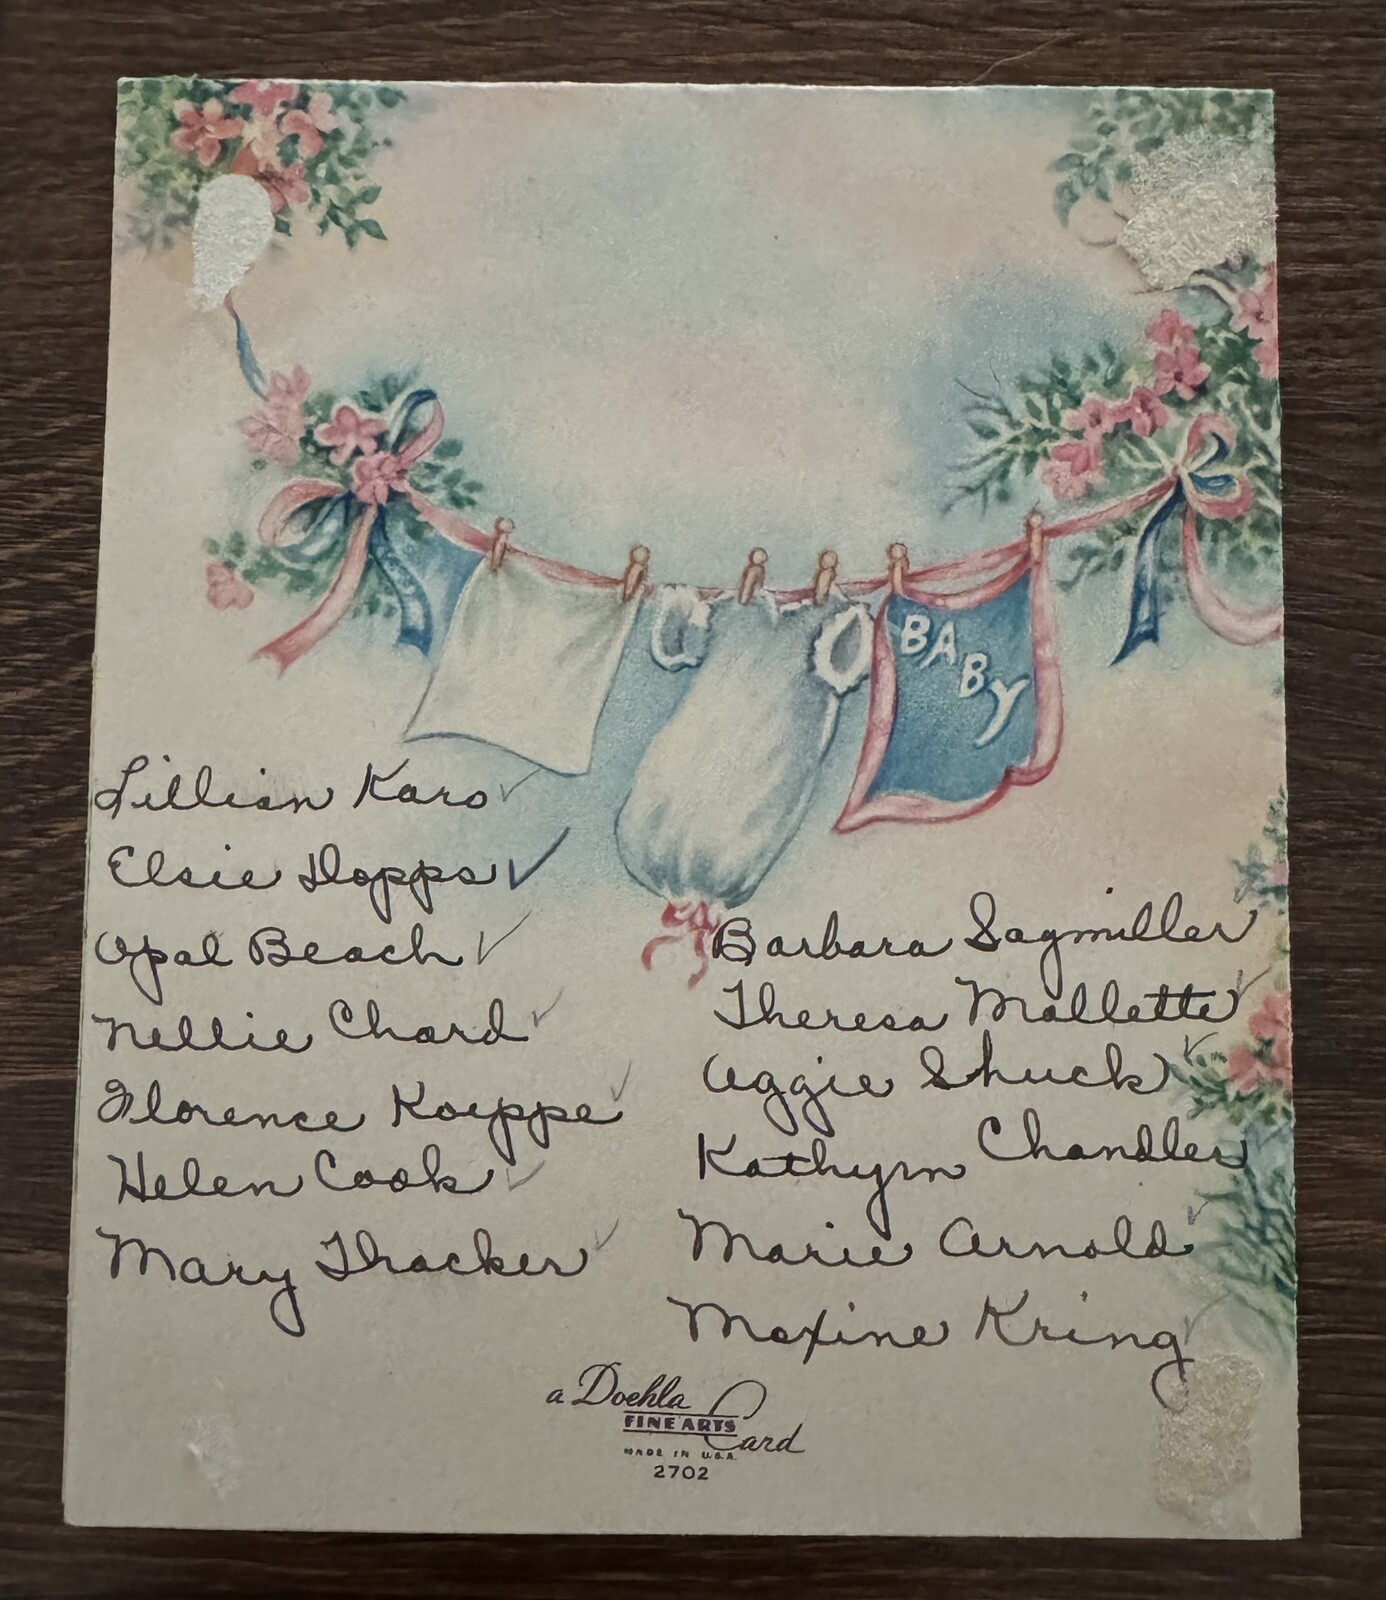 BABY
Lillian Karo
Elsie Hopps
Opal Beach
Nellie Chard
Florence Koeppe
Helen Cook
Mary Thacker
Barbara Sagmiller
Theresa Mallette
Aggie Shuck
Kathyrn Chandler
Marie Arnold
Maxine Kring
a Doehla
FINE ARTS
Card
MADE IN U.S.A.
2702